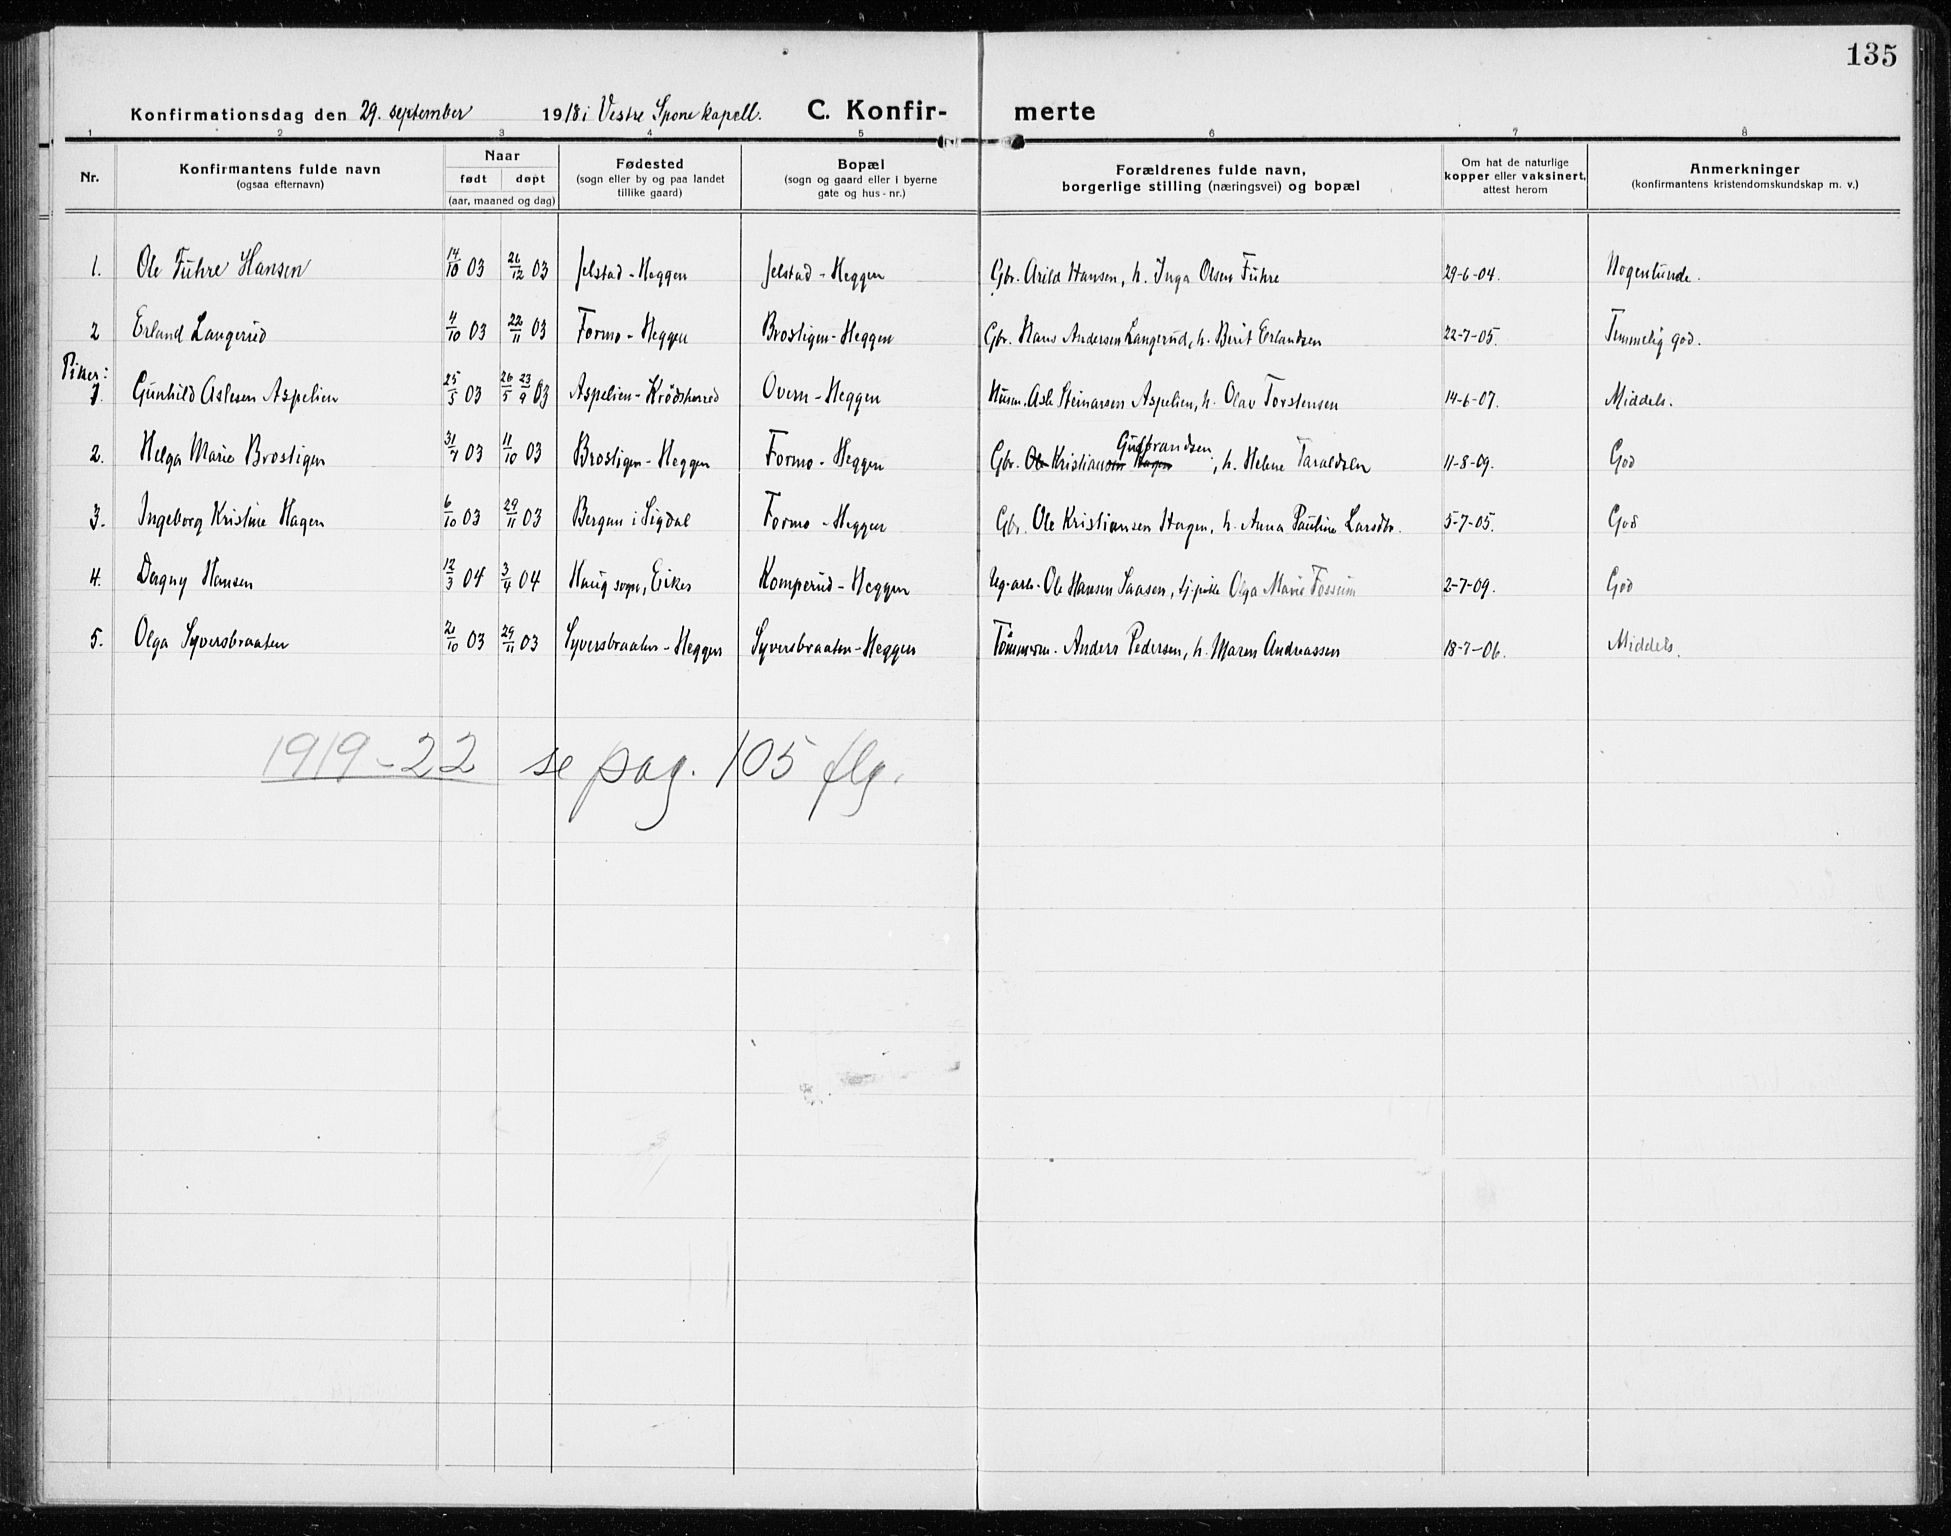 135
Konfirmationsdag den 29. september 1918 i Vestre Spone kapell. C. Konfir- merte
1 2 3 4 5 6 7 8
Nr. Konfirmantens fulde navn (ogsaa efternavn) Naar født døpt (aar, maaned og dag) Fødested (sogn eller by og paa landet tillike gaard) Bopæl (sogn og gaard eller i byerne gate og hus-nr.) Forældrenes fulde navn, borgerlige stilling (næringsvei) og bopæl Om hat de naturlige kopper eller vaksinert, attest herom Anmerkninger (konfirmantens kristendomskundskap m. v.)
1. Ole Fuhre Hansen 14/10 03 26/12 03 Jelstad - Heggen Jelstad - Heggen Gbr. Arild Hansen, h. Inga Olsen Fuhre 29-6-04. Nogenlunde.
2 Erland Langerud 4/10 03 22/11 03 Formo - Heggen Brostigen - Heggen Gbr. Hans Andersen Langerud, h. Berit Erlandsen 22-7-05. Temmelig god.
Piker:
1. Gunhild Aslesen Aspelien 25/5 03 26/5 23/9 03 Aspelien - Krödsherred Overn - Heggen Husm. Asle Steinarsen Aspelien, h. Olav Torstensen 14-6-07. Middels.
2. Helga Marie Brostigen 31/7 03 11/10 03 Brostigen - Heggen Formo - Heggen Gbr. Ole Kristiansen Hagen Gulbrandsen, h. Helene Taraldsen 11-8-09. God
3. Ingeborg Kristine Hagen 6/10 03 29/11 03 Bergan i Sigdal Formo - Heggen Gbr. Ole Kristiansen Hagen, h. Anna Pauline Larsdtr. 5-7-05. God
4. Dagny Hansen 12/3 04 3/4 04 Haug sogn, Eiker Komperud - Heggen Ug. arb. Ole Hansen Saasen, tj. pike Olga Marie Fossum 2-7-09. God
5. Olga Syversbraaten 2/10 03 29/11 03 Syversbraaten - Heggen Syversbraaten - Heggen Tömmerm. Anders Pedersen, h. Maren Andreassen 18-7-06. Middels.
1919-22 se pag. 105 flg.